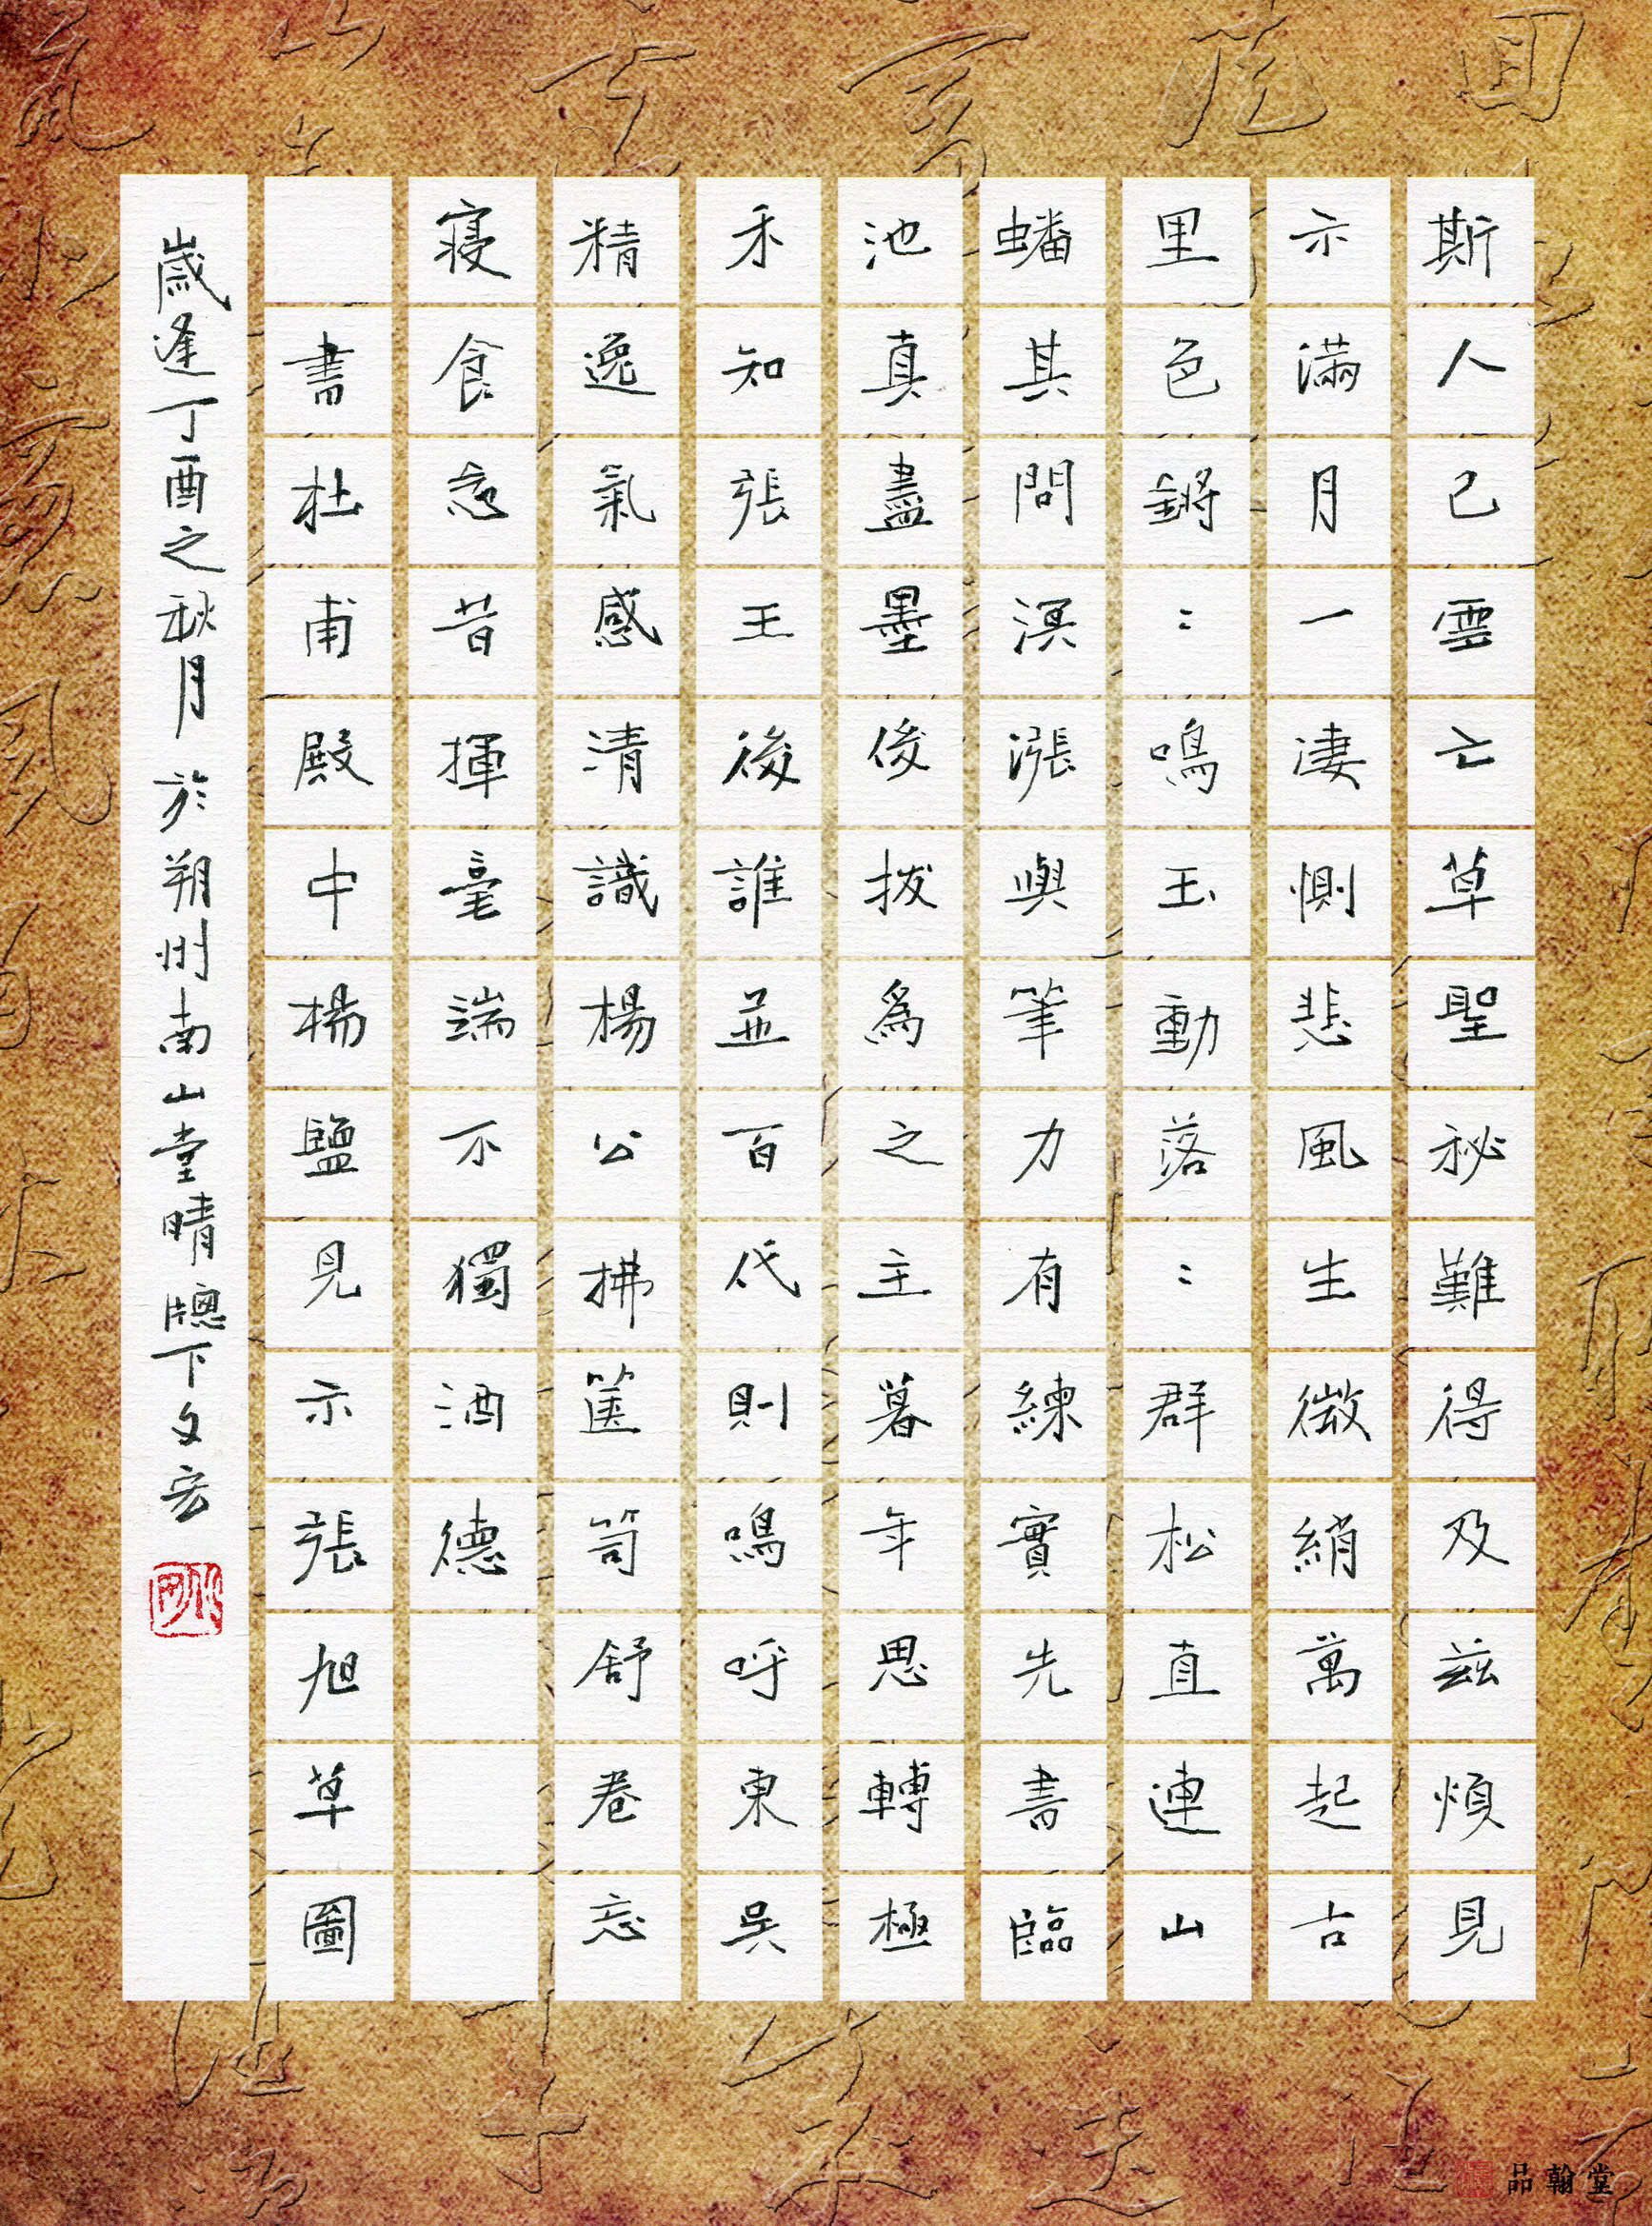 斯人已雲亡草聖秘難得及茲煩見
示滿月一淒惻悲風生微綃萬起古
里色鏘〻鳴玉動落〻群松直連山
蟠其問溟漲與筆力有練實先書臨
池真盡墨俊拔為之主暮年思轉極
未知張王後誰並百代則鳴呼東吳
精逸氣感清識楊公拂篋笥舒卷忘
寢食念昔揮毫端不獨酒德
書杜甫殿中楊鹽見示張旭草圖
歲逢丁酉之秋月於朔州南山堂晴牕下文宏
品翰堂